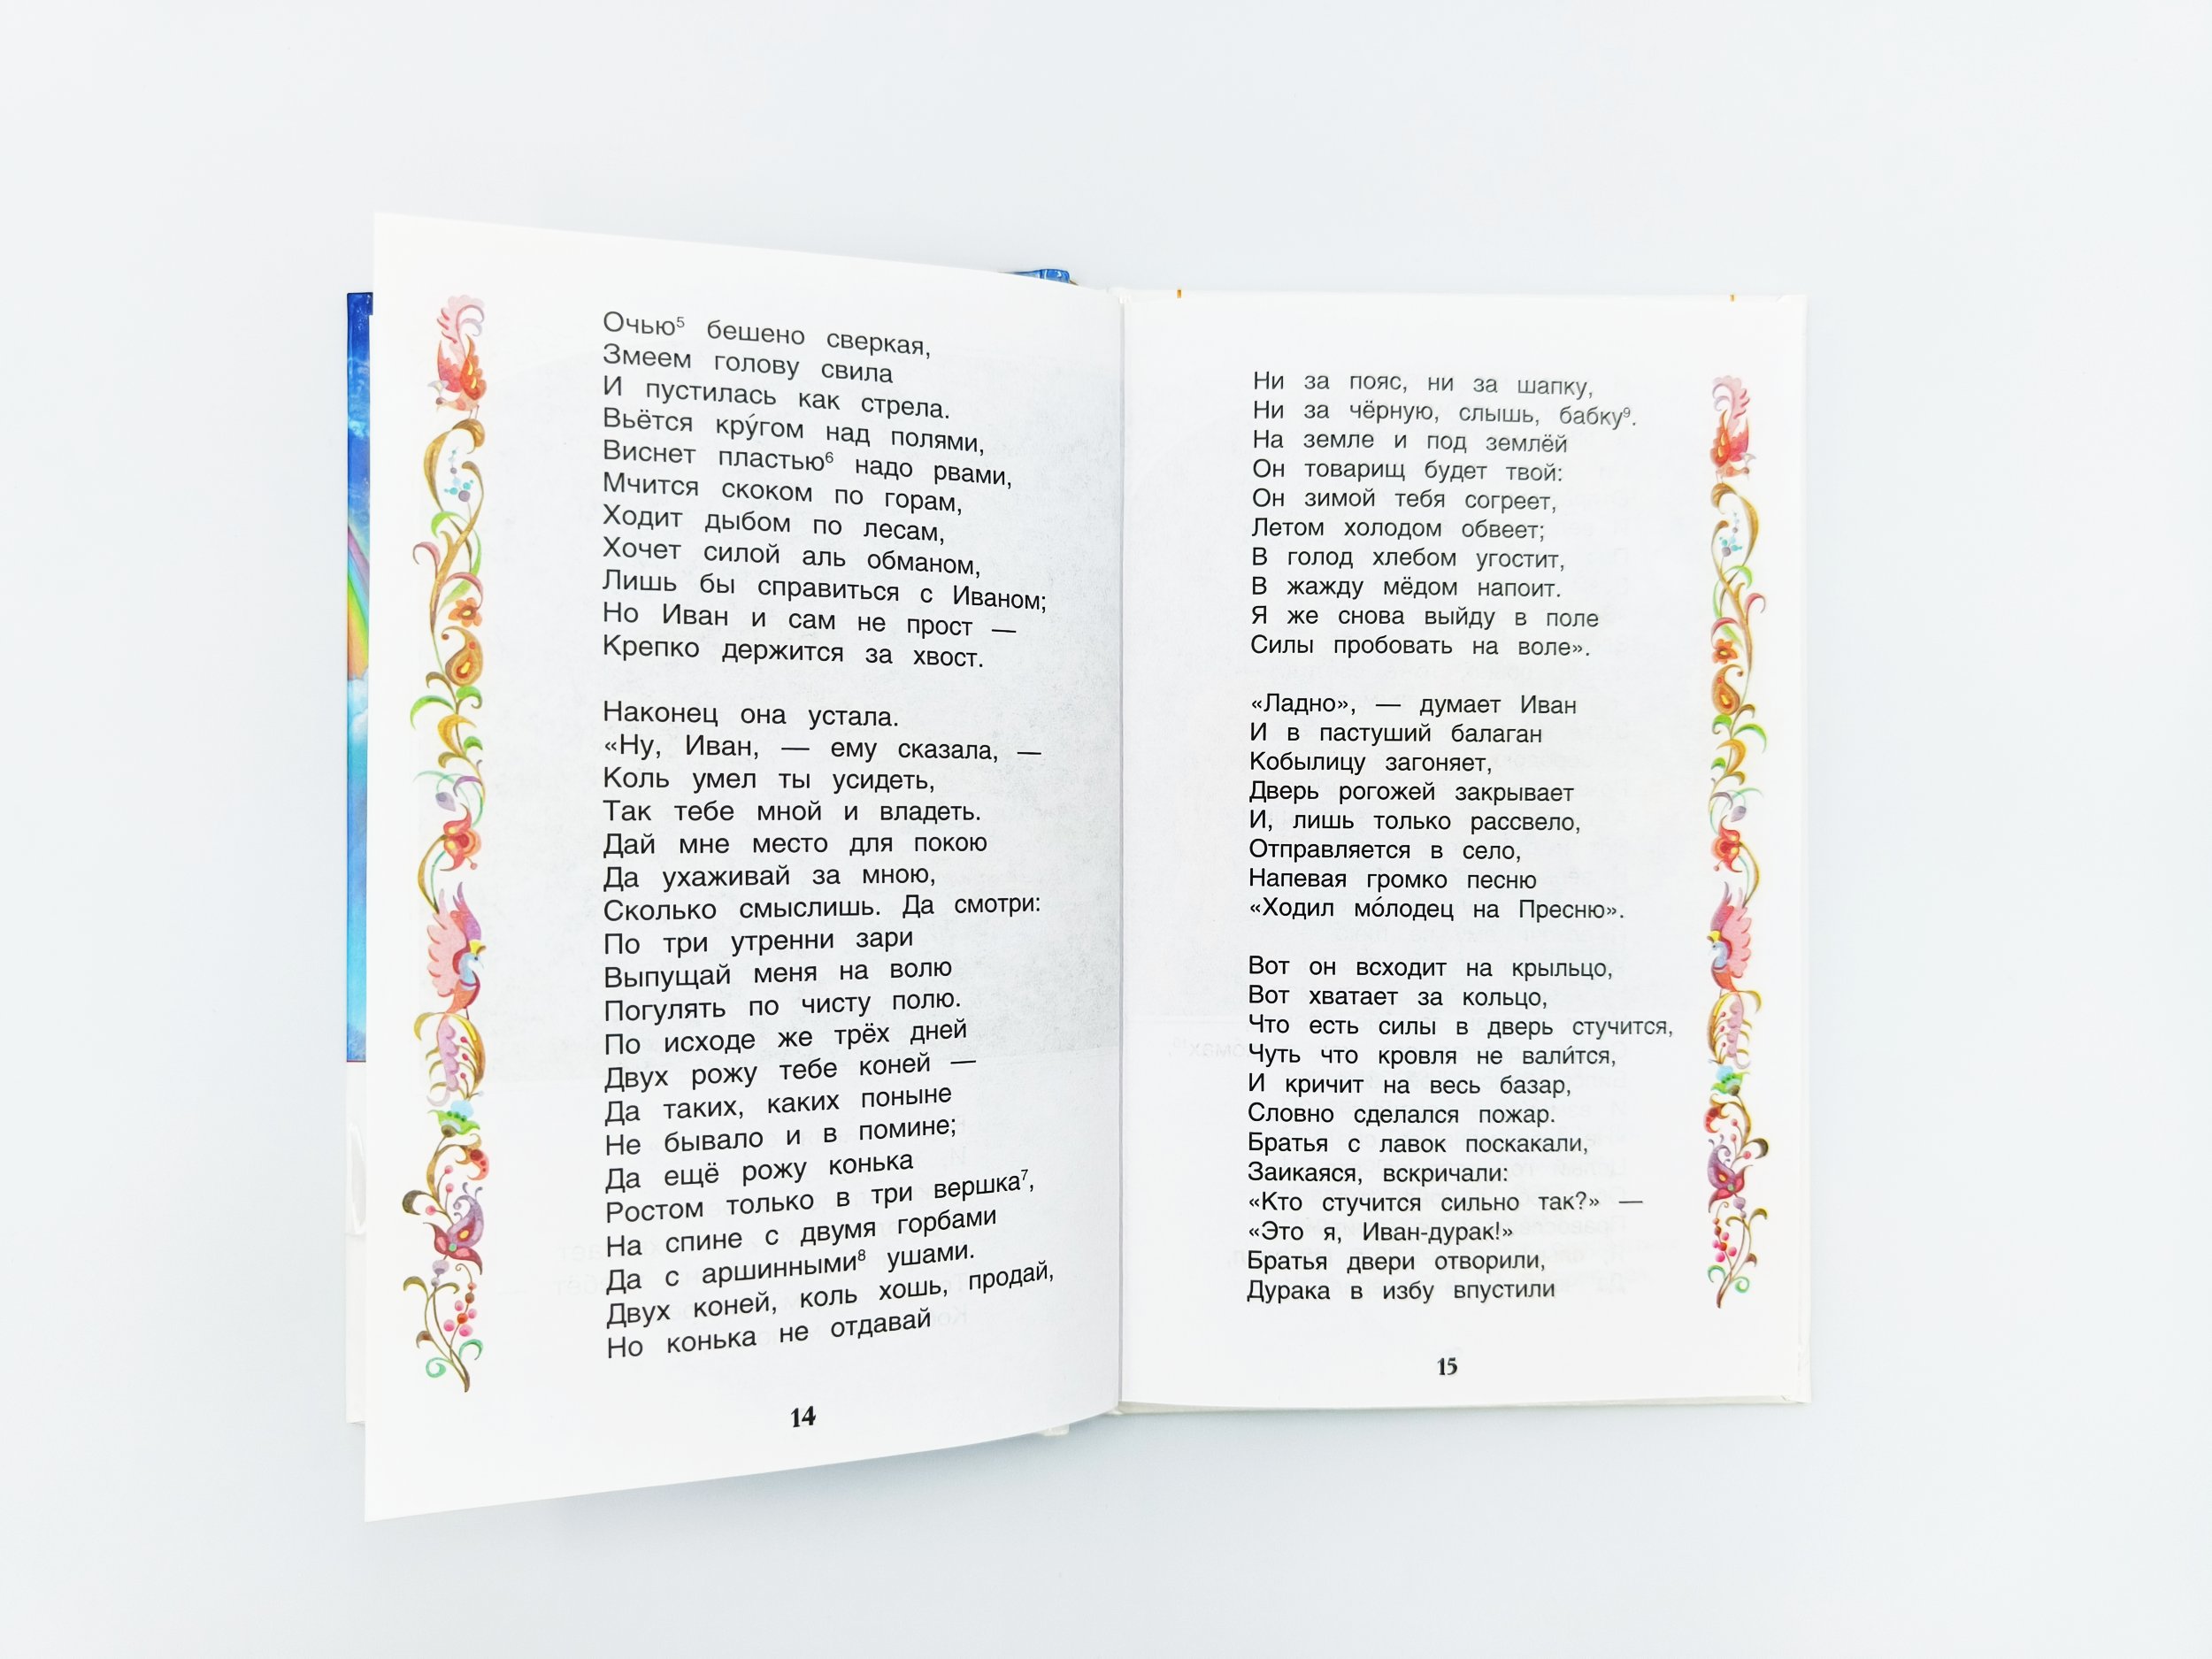 Очью⁵ бешено сверкая,
Змеем голову свила
И пустилась как стрела.
Вьётся кру́гом над полями,
Виснет пластью⁶ надо рвами,
Мчится скоком по горам,
Ходит дыбом по лесам,
Хочет силой аль обманом,
Лишь бы справиться с Иваном;
Но Иван и сам не прост —
Крепко держится за хвост.
Наконец она устала.
«Ну, Иван, — ему сказала, —
Коль умел ты усидеть,
Так тебе мной и владеть.
Дай мне место для покою
Да ухаживай за мною,
Сколько смыслишь. Да смотри:
По три утренни зари
Выпущай меня на волю
Погулять по чисту полю.
По исходе же трёх дней
Двух рожу тебе коней —
Да таких, каких поныне
Не бывало и в помине;
Да ещё рожу конька
Ростом только в три вершка⁷,
На спине с двумя горбами
Да с аршинными⁸ ушами.
Двух коней, коль хошь, продай,
Но конька не отдавай
14
Ни за пояс, ни за шапку,
Ни за чёрную, слышь, бабку⁹.
На земле и под землёй
Он товарищ будет твой:
Он зимой тебя согреет,
Летом холодом обвеет;
В голод хлебом угостит,
В жажду мёдом напоит.
Я же снова выйду в поле
Силы пробовать на воле».
«Ладно», — думает Иван
И в пастуший балаган
Кобылицу загоняет,
Дверь рогожей закрывает
И, лишь только рассвело,
Отправляется в село,
Напевая громко песню
«Ходил мо́лодец на Пресню».
Вот он всходит на крыльцо,
Вот хватает за кольцо,
Что есть силы в дверь стучится,
Чуть что кровля не вали́тся,
И кричит на весь базар,
Словно сделался пожар.
Братья с лавок поскакали,
Заикаяся, вскричали:
«Кто стучится сильно так?» —
«Это я, Иван-дурак!»
Братья двери отворили,
Дурака в избу впустили
15